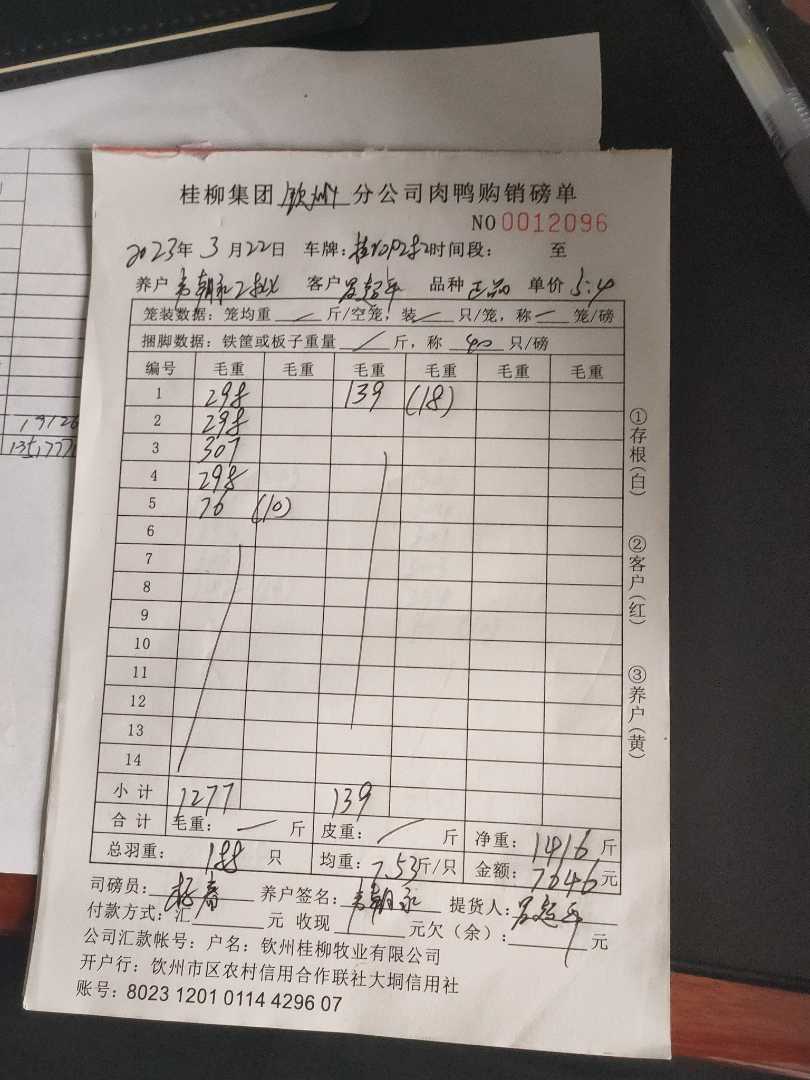 桂柳集团 钦州 分公司肉鸭购销磅单
NO 0012096
2023年 3 月 22日 车牌: 时间段: 至
养户 客户 罗超平 品种 正品 单价 5.4
笼装数据: 笼均重 / 斤/空笼, 装 / 只/笼, 称 / 笼/磅
捆脚数据: 铁筐或板子重量 / 斤, 称 40 只/磅
编号 毛重 毛重 毛重 毛重 毛重 毛重
1 298 139 (18)
2 298
3 307
4 298
5 76 (10)
6
7
8
9
10
11
12
13
14
小计 1277 139
合计 毛重: 一 斤 皮重: / 斤 净重: 1416 斤
总羽重: 188 只 均重: 7.53斤/只 金额: 7646元
司磅员: 养户签名: 韦朝永 提货人: 罗超平
付款方式: 汇 元 收现 元欠(余): 元
公司汇款帐号: 户名: 钦州桂柳牧业有限公司
开户行: 钦州市区农村信用合作联社大垌信用社
账号: 8023 1201 0114 4296 07
①存根(白)
②客户(红)
③养户(黄)
19126